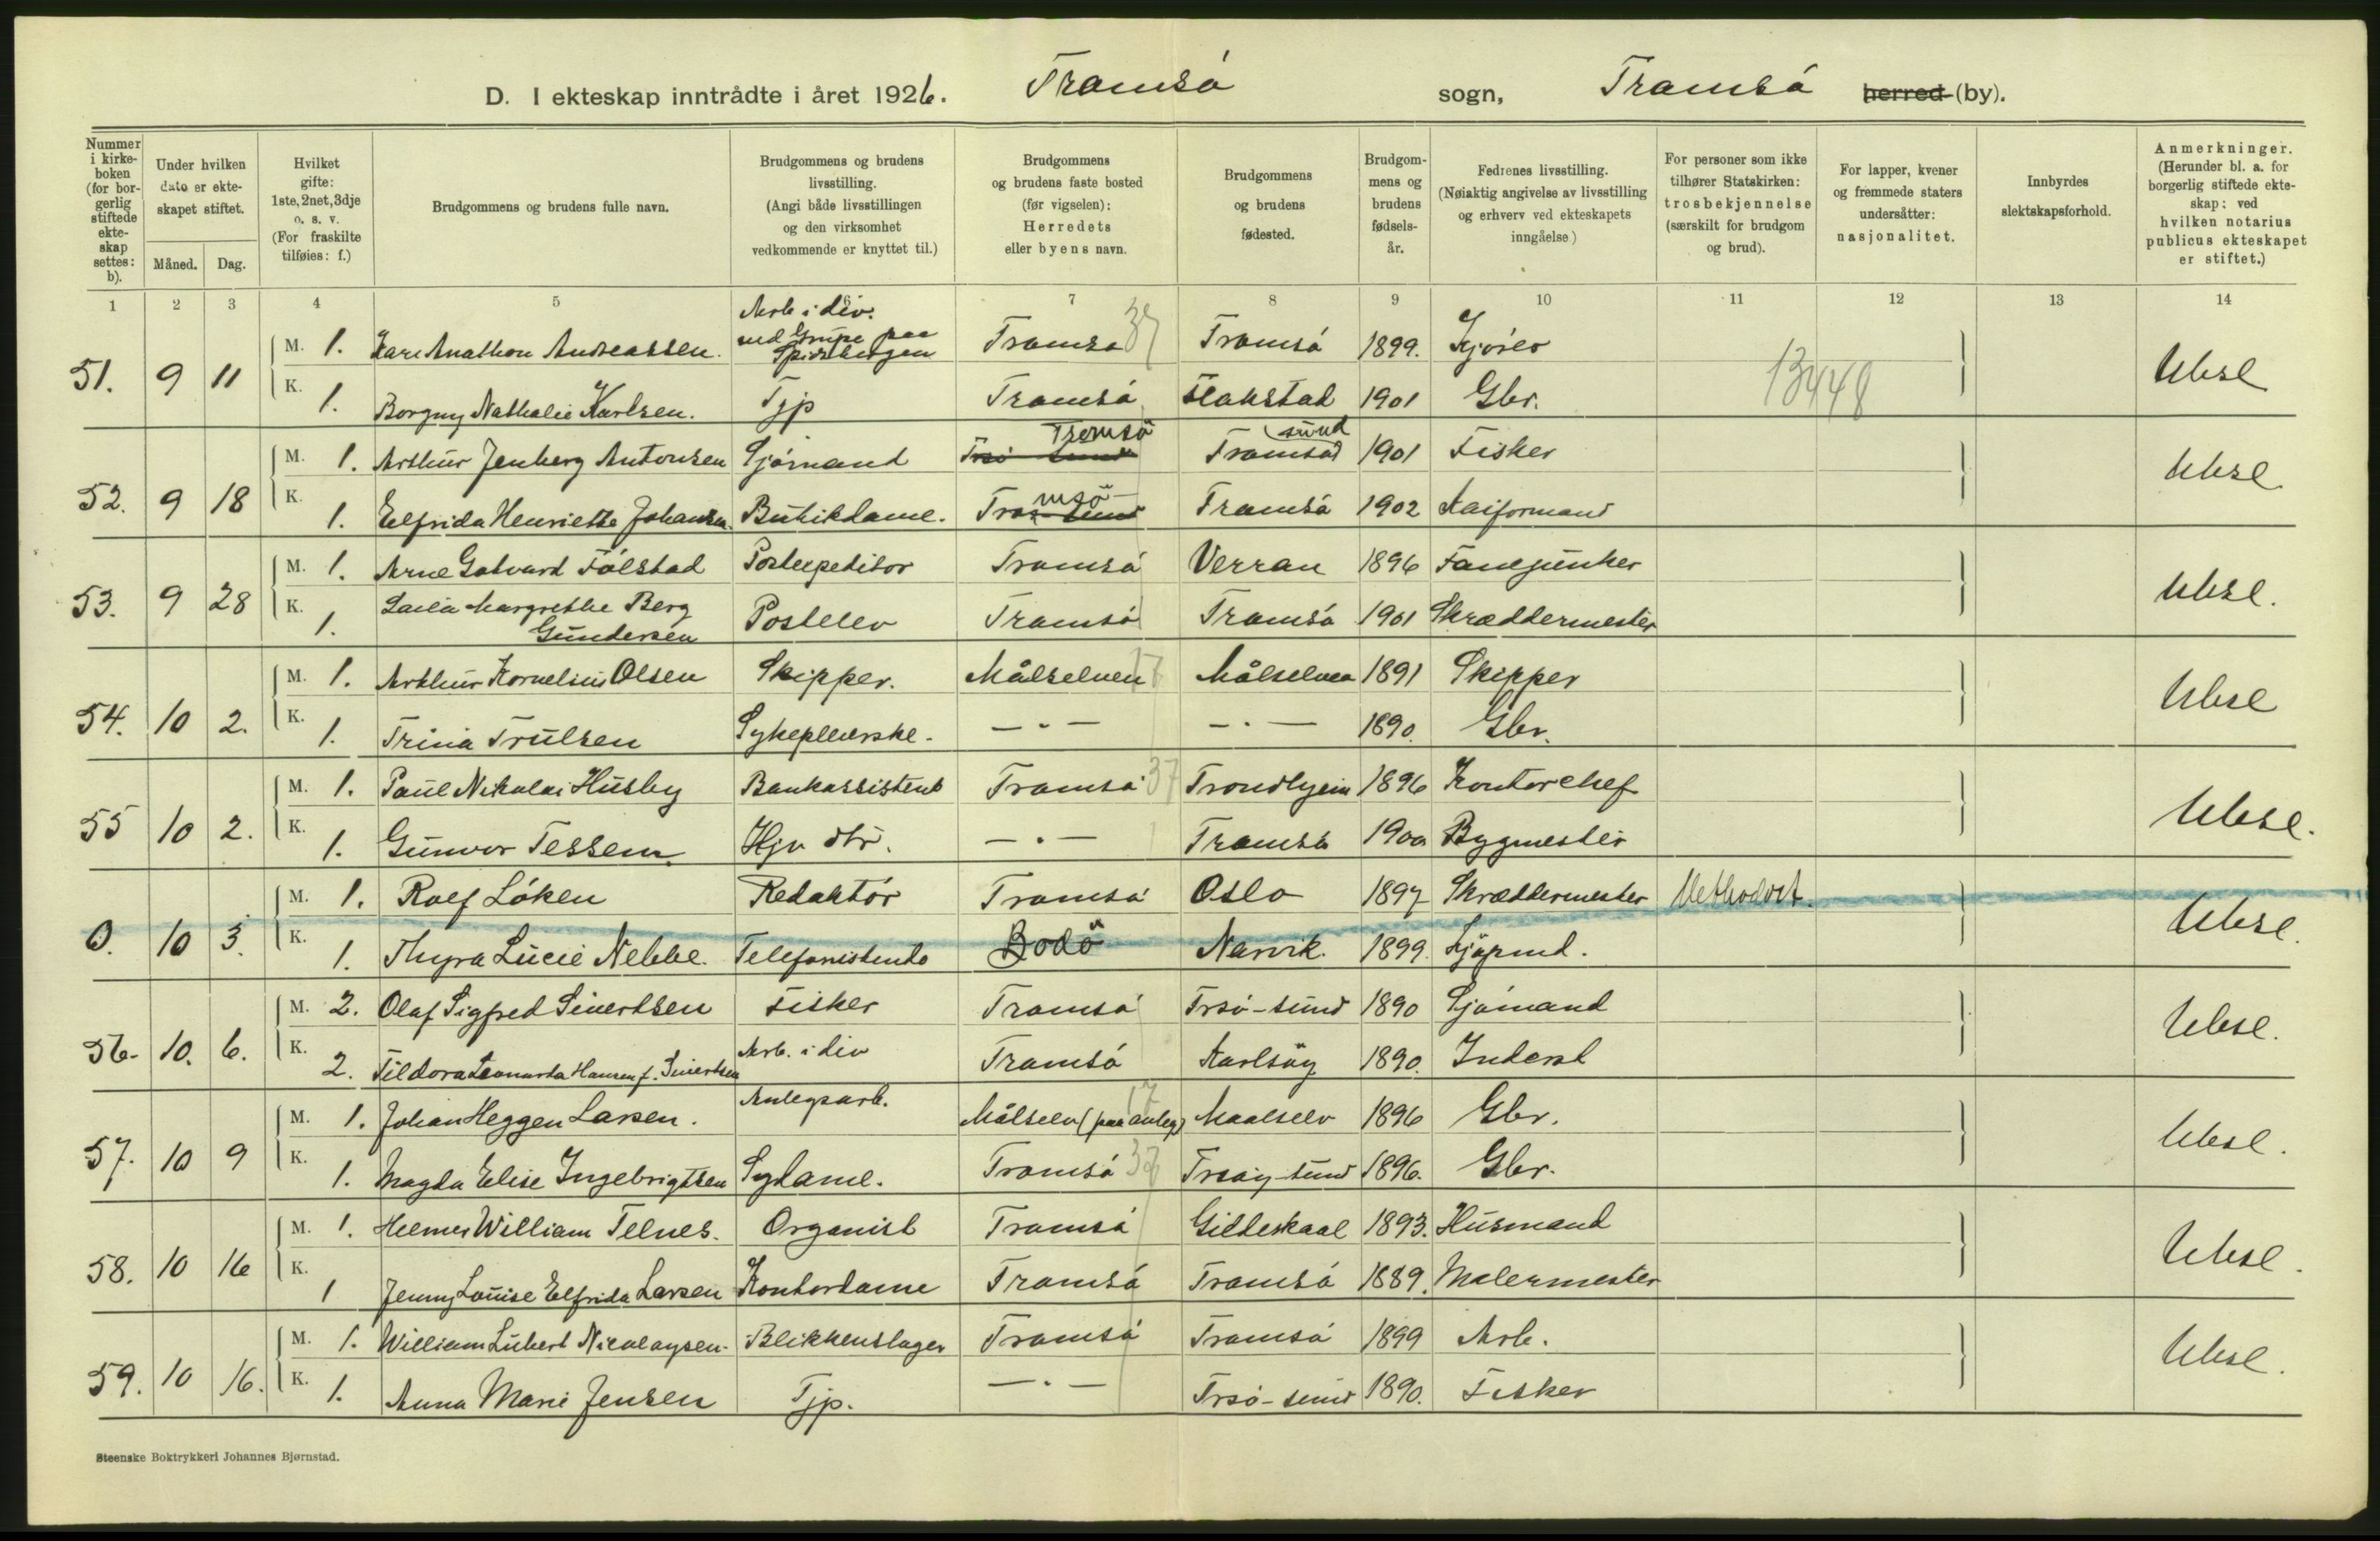 D. I ekteskap inntrådte i året 1926. Tromsö sogn, Tromsö herred (by).
Nummer i kirkeboken (for borgerlig stiftede ekteskap settes: b).
Under hvilken dato er ekteskapet stiftet.
Måned. Dag.
Hvilket gifte: 1ste, 2net, 3dje o. s. v. (For fraskilte tilføies: f.)
Brudgommens og brudens fulle navn.
Brudgommens og brudens livsstilling. (Angi både livsstillingen og den virksomhet vedkommende er knyttet til.)
Brudgommens og brudens faste bosted (før vigselen): Herredets eller byens navn.
Brudgommens og brudens fødested.
Brudgommens og brudens fødselsår.
Fedrenes livsstilling. (Nøiaktig angivelse av livsstilling og erhverv ved ekteskapets inngåelse)
For personer som ikke tilhører Statskirken: trosbekjennelse (særskilt for brudgom og brud).
For lapper, kvener og fremmede staters undersåtter: nasjonalitet.
Innbyrdes slektskapsforhold.
Anmerkninger. (Herunder bl. a. for borgerlig stiftede ekteskap: ved hvilken notarius publicus ekteskapet er stiftet.)
1 2 3 4 5 6 7 8 9 10 11 12 13 14
51. 9 11 M. 1. Karl Anathon Andreassen. Arb i div. ved Grube paa Spidsbergen Tromsö 37 Tromsö 1899. 13448
K. 1. Borgny Nathalie Karlsen. Tjp Tromsö Flakstad 1901 Gbr.
52. 9 18 M. 1. Arthur Jenberg Antonsen Sjömand Trsö-sund Tromsö Tromsösund 1901 Fisker
K. 1. Elfrida Henriette Johansen. Butikdame. Tromsö Tromsö 1902 Kaiformand
53. 9 28 M. 1. Arne Gotvard Fölstad Postexpeditor Tromsö Verran 1896 Fanejunker
K. 1. Laila Margrethe Berg Gundersen Postelev Tromsö Tromsö 1901 Skræddermester
54. 10 2. M. 1. Arthur Kornelius Olsen Skipper. Målselven 17 Målselven 1891 Skipper
K. 1. Trina Trulsen Sykepleierske. — " — — " — 1890. Gbr.
55 10 2. M. 1. Paul Nikolai Husby Bankassistent Tromsö 37 Trondhjem 1896 Kontorchef
K. 1. Gunvor Tessem Hjv dtr. — " — Tromsö 1900 Bygmester
0. 10 3. M. 1. Rolf Löken Redaktör Tromsö Oslo 1897 Skræddermester Methodist.
K. 1. Thyra Lucie Nebbe. Telefonistinde Bodö Narvik. 1899.
56. 10. 6. M. 2. Olaf Sigfred Sivertsen Fisker Tromsö Trsö-sund 1890 Sjömand
K. 2. Tildora Leonarda Hansen f. Sivertsen Arb. i div Tromsö Karlsöy 1890. Inderst
57. 10 9 M. 1. Johan Heggen Larsen. Anlegsarb. Målselv (paa anleg) 17 Maalselv 1896 Gbr.
K. 1. Magda Elise Ingebrigtsen Sydame. Tromsö 37 Trsöy-sund 1896. Gbr.
58. 10 16 M. 1. Helmer William Telnes. Organist Tromsö Gildeskaal 1893. Husmand
K. 1 Jenny Louise Elfrida Larsen Kontordame Tromsö Tromsö 1889. Malermester
59. 10 16. M. 1. William Lubert Nicolaysen. Blikkenslager Tromsö Tromsö 1899 Arb.
K. 1. Anna Marie Jensen Tjp. — " — Trsö-sund 1890. Fisker
Steenske Boktrykkeri Johannes Bjørnstad.